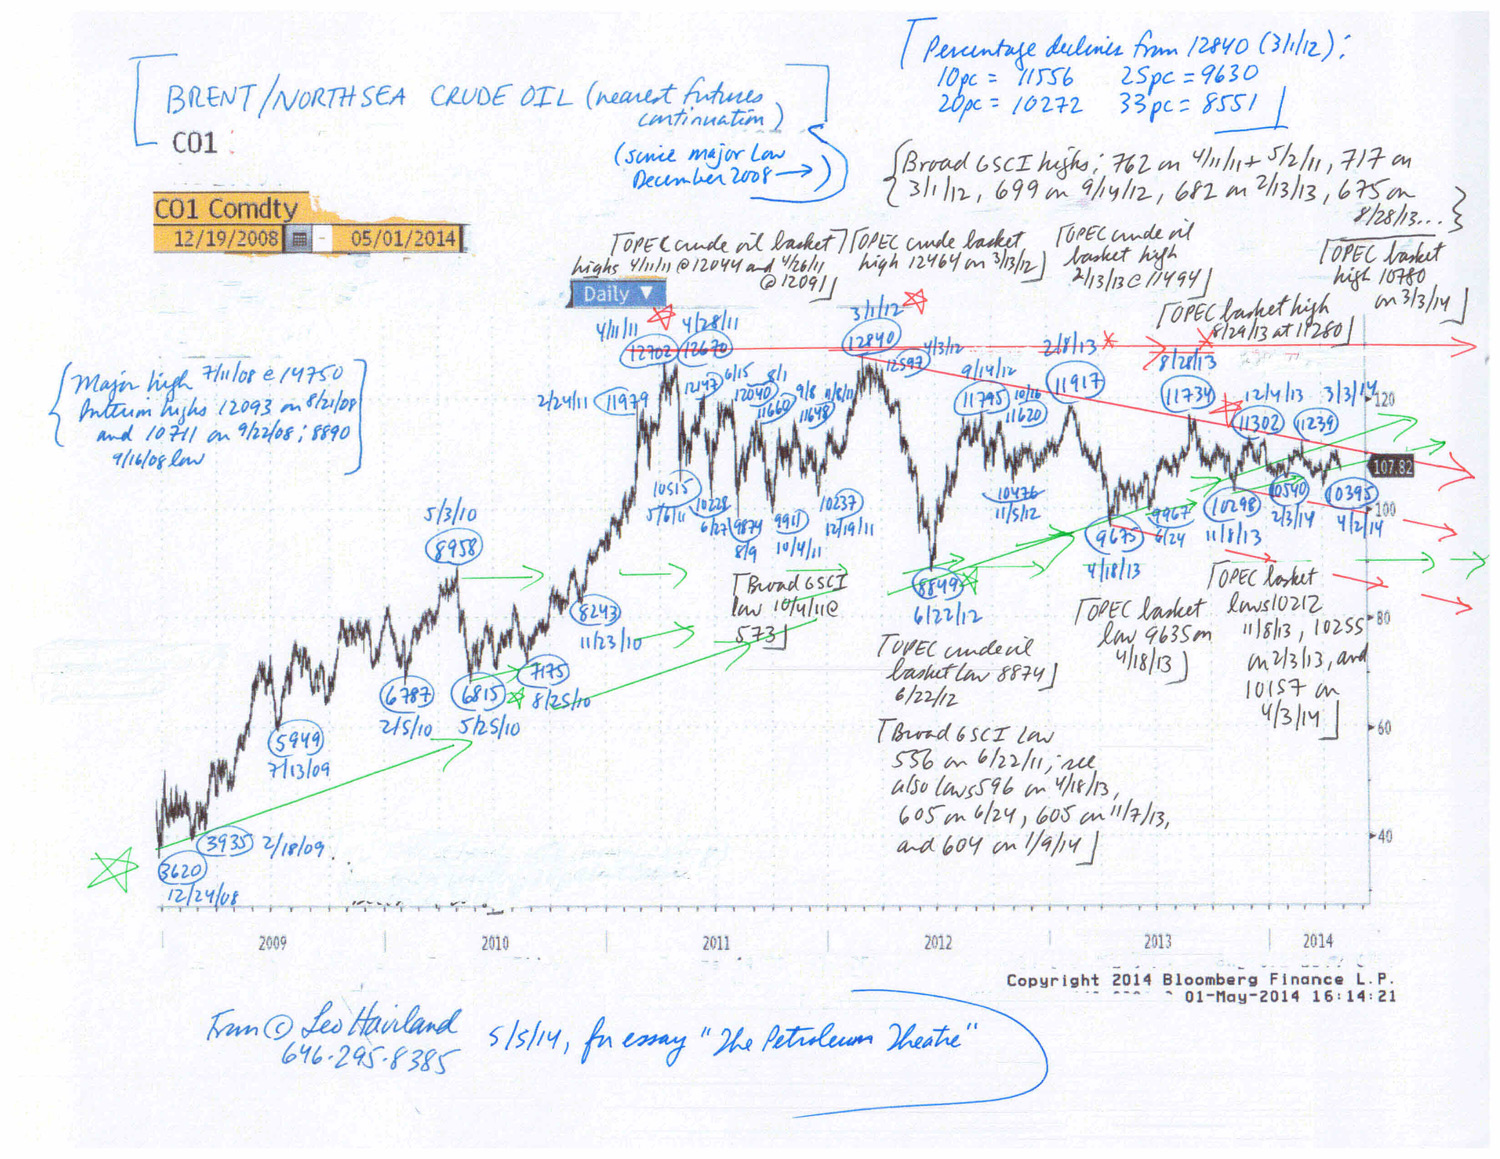 BRENT/NORTHSEA CRUDE OIL (nearest futures
continuation)
CO1
(since major low
December 2008 → )
Percentage declines from 12840 (3/1/12):
10pc = 11556 25pc = 9630
20pc = 10272 33pc = 8551
CO1 Comdty
12/19/2008 - 05/01/2014
Broad GSCI highs; 762 on 4/11/11 + 5/2/11, 717 on
3/1/12, 699 on 9/14/12, 682 on 2/13/13, 675 on
8/28/13...
OPEC crude oil basket
highs 4/11/11 @ 12044 and 4/26/11
@ 12091
OPEC crude basket
high 12464 on 3/13/12
OPEC crude oil
basket high
2/13/13 @ 11494
OPEC basket
high 10780
on 3/3/14
OPEC basket high
8/29/13 at 11280
Daily ▼
Major high 7/11/08 @ 14750
Interim highs 12093 on 8/21/08
and 10711 on 9/22/08; 8890
9/16/08 low
4/11/11
12702
4/28/11
12670
3/1/12
12840
12597
4/3/12
2/8/13
11917
8/28/13
11734
12/4/13
11302
3/3/14
11239
2/24/11
11979
12147
6/15
12040
8/1
11660
9/8
11648
11/8/11
9/14/12
11795
10/16
11620
120
107.82
100
80
60
40
5/3/10
8958
10515
5/6/11
10228
6/27
9874
8/9
9911
10/4/11
10237
12/19/11
10476
11/5/12
9675
4/18/13
9967
6/24
10298
11/8/13
10540
2/3/14
10395
4/2/14
8243
11/23/10
8849
6/22/12
6787
2/5/10
6815
5/25/10
7175
8/25/10
5949
7/13/09
3935
2/18/09
3620
12/24/08
Broad GSCI
low 10/4/11 @
573
OPEC crude oil
basket low 8874
6/22/12
OPEC basket
low 9635 on
4/18/13
OPEC basket
lows 10212
11/8/13, 10255
on 2/3/14, and
10157 on
4/3/14
Broad GSCI low
556 on 6/22/11; see
also lows 596 on 4/18/13,
605 on 6/24, 605 on 11/7/13,
and 604 on 1/9/14
2009 2010 2011 2012 2013 2014
Copyright 2014 Bloomberg Finance L.P.
01-May-2014 16:14:21
From © Leo Haviland
646-295-8385
5/5/14, for essay "The Petroleum Theatre"